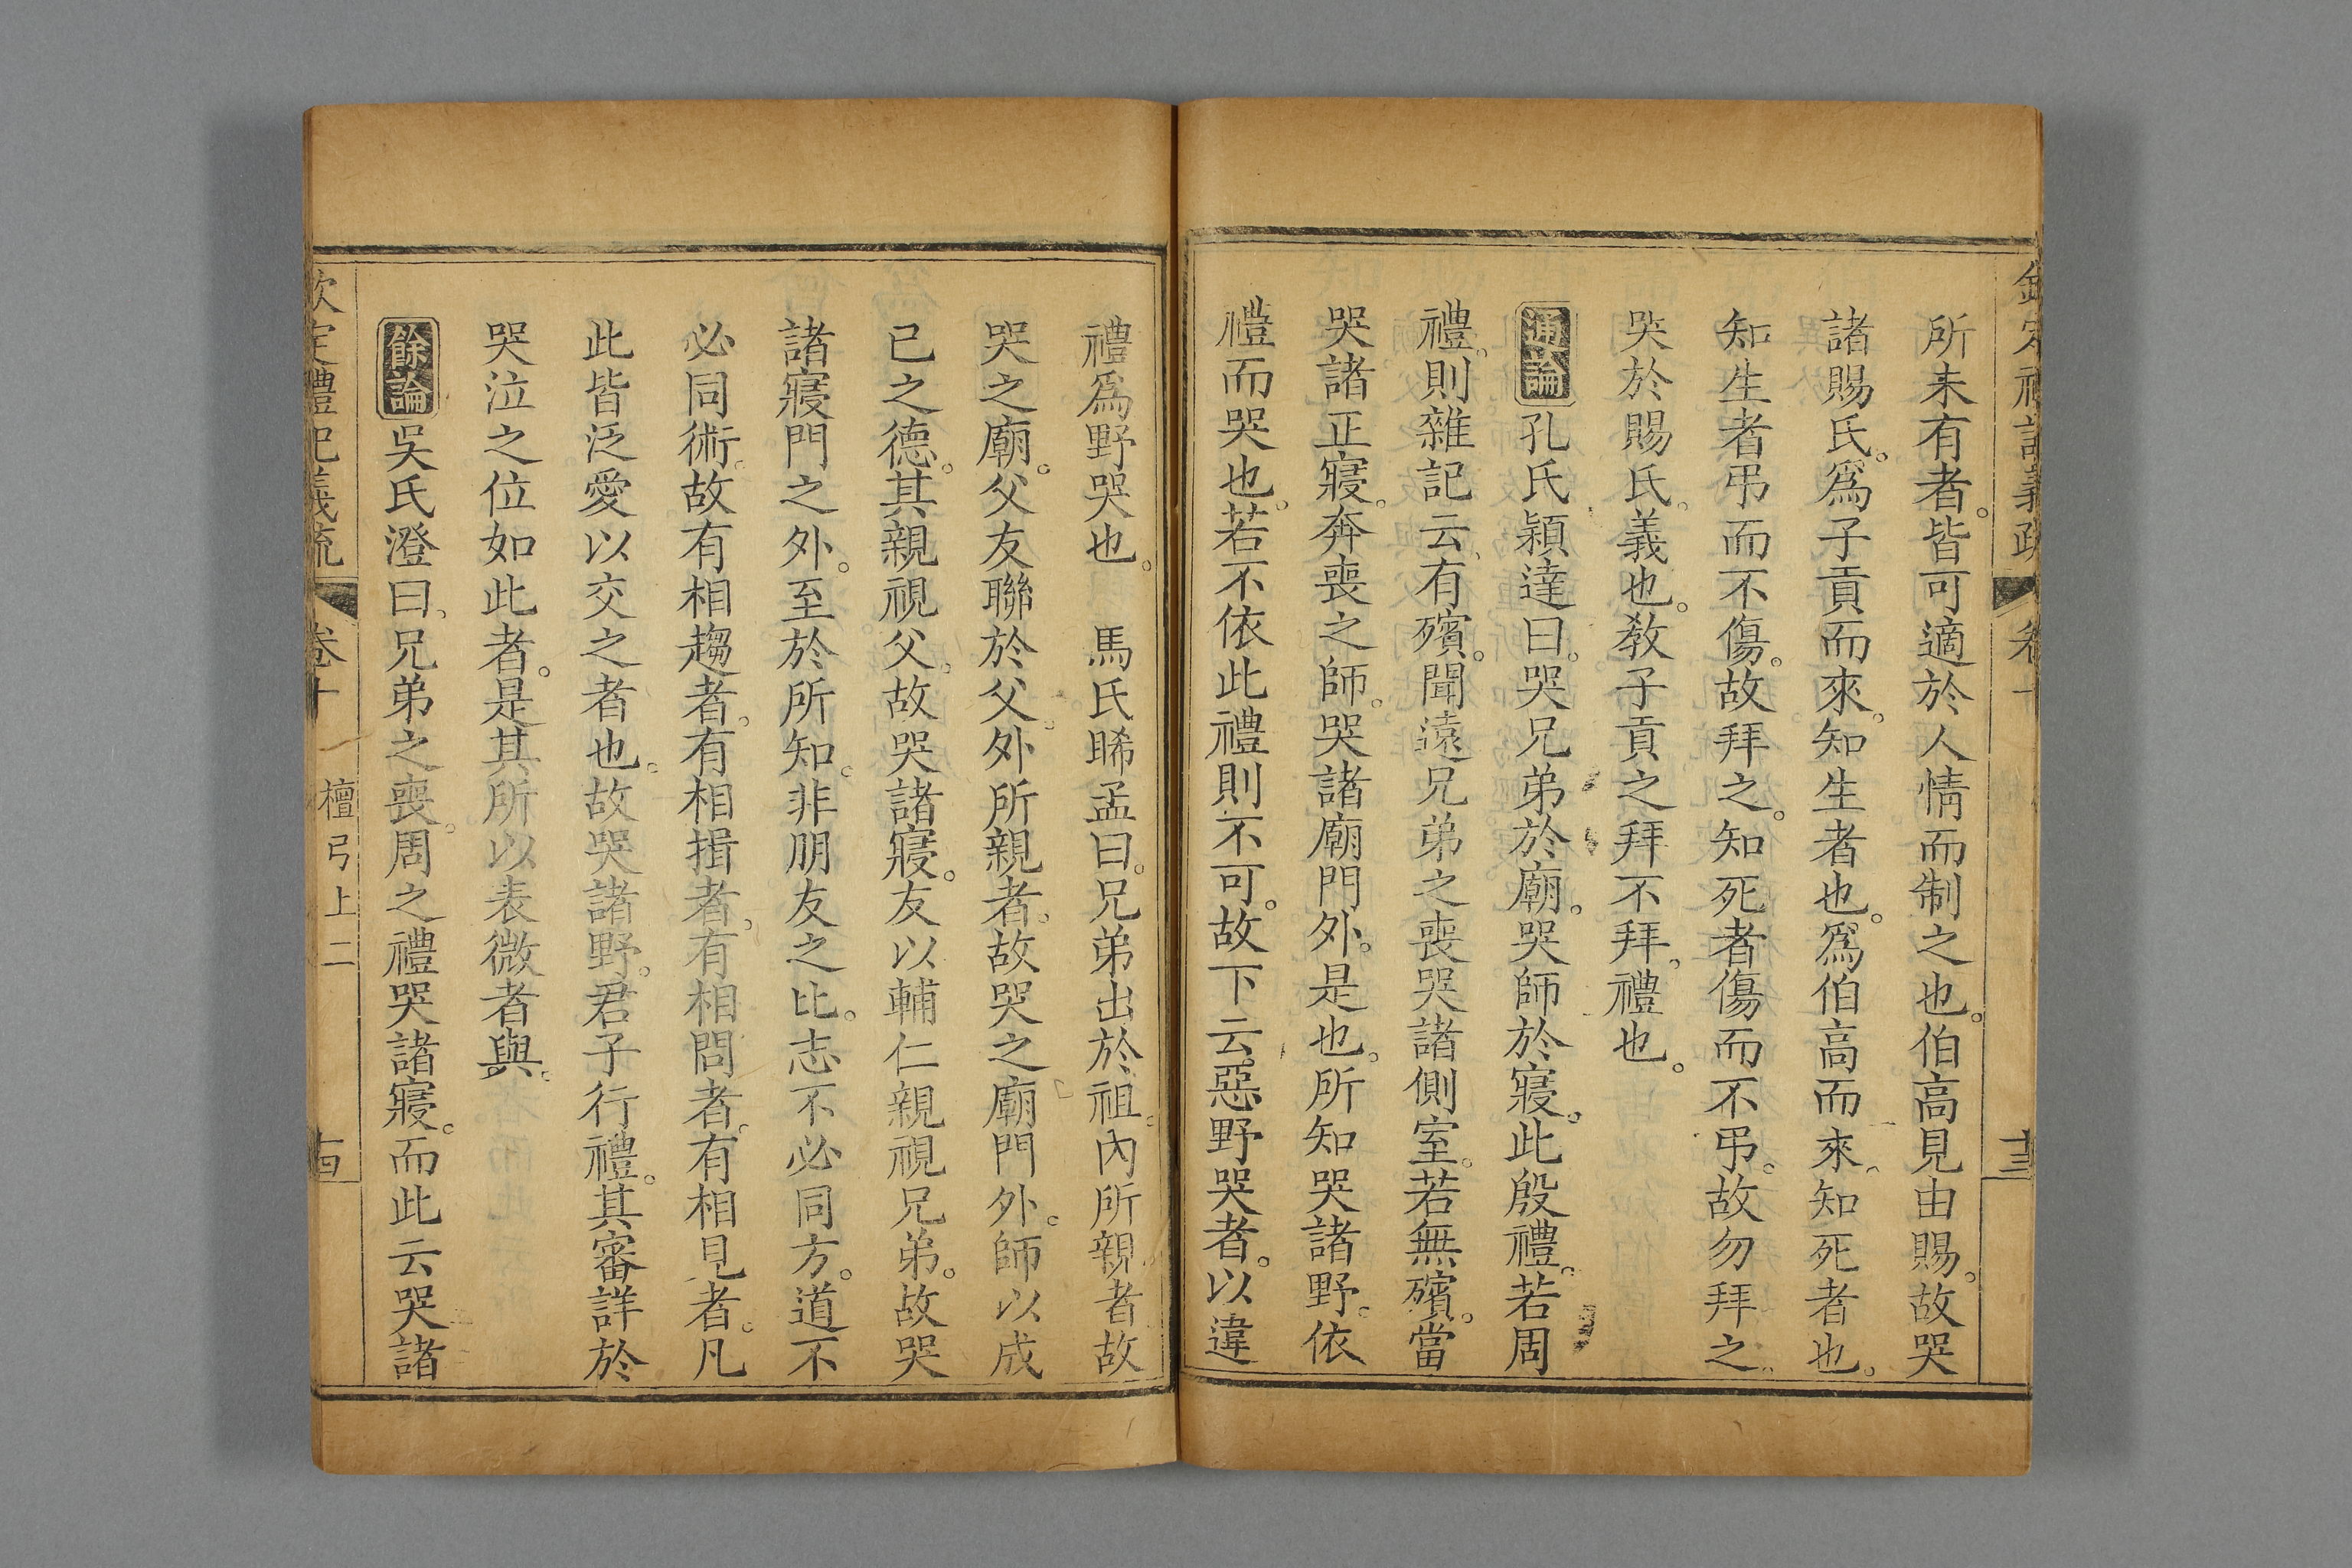 欽定禮記義疏 卷十 十三
所未有者。皆可適於人情而制之也。伯高見由賜。故哭
諸賜氏。爲子貢而來。知生者也。爲伯高而來。知死者也。
知生者弔而不傷。故拜之。知死者傷而不弔。故勿拜之。
哭於賜氏。義也。敎子貢之拜不拜。禮也。
通論 孔氏穎達曰。哭兄弟於廟。哭師於寢。此殷禮。若周
禮。則雜記云、有殯。聞遠兄弟之喪哭諸側室。若無殯。當
哭諸正寢。奔喪之師。哭諸廟門外。是也。所知哭諸野。依
禮而哭也。若不依此禮則不可。故下云。惡野哭者。以違
禮爲野哭也。 馬氏睎孟曰。兄弟出於祖。內所親者故
哭之廟。父友聯於父。外所親者。故哭之廟門外。師以成
已之德。其親視父。故哭諸寢。友以輔仁親視兄弟。故哭
諸寢門之外。至於所知。非朋友之比。志不必同方。道不
必同術。故有相趨者。有相揖者。有相問者。有相見者。凡
此皆泛愛以交之者也。故哭諸野。君子行禮。其審詳於
哭泣之位如此者。是其所以表微者與。
餘論 吳氏澄曰、兄弟之喪。周之禮哭諸寢。而此云哭諸
欽定禮記義疏 卷十 檀弓上二 十四